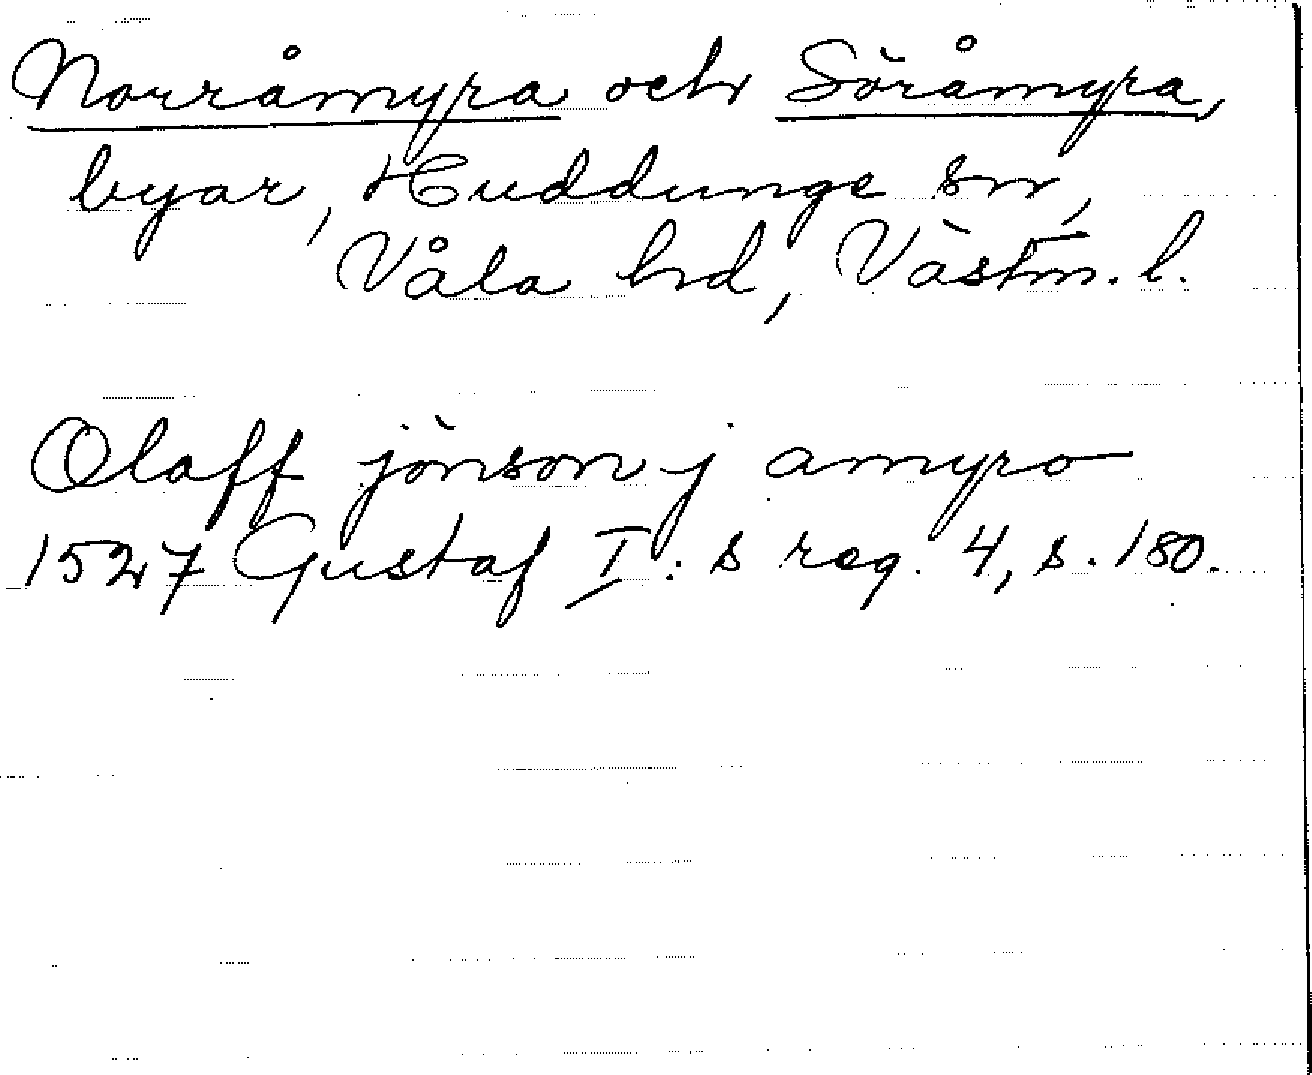 Norråmyra och Söråmyra,
byar, Huddunge sn,
Våla hd, Västm. l.
Olaff jönson j amyro
1527 Gustaf I:s reg. 4, s. 180.